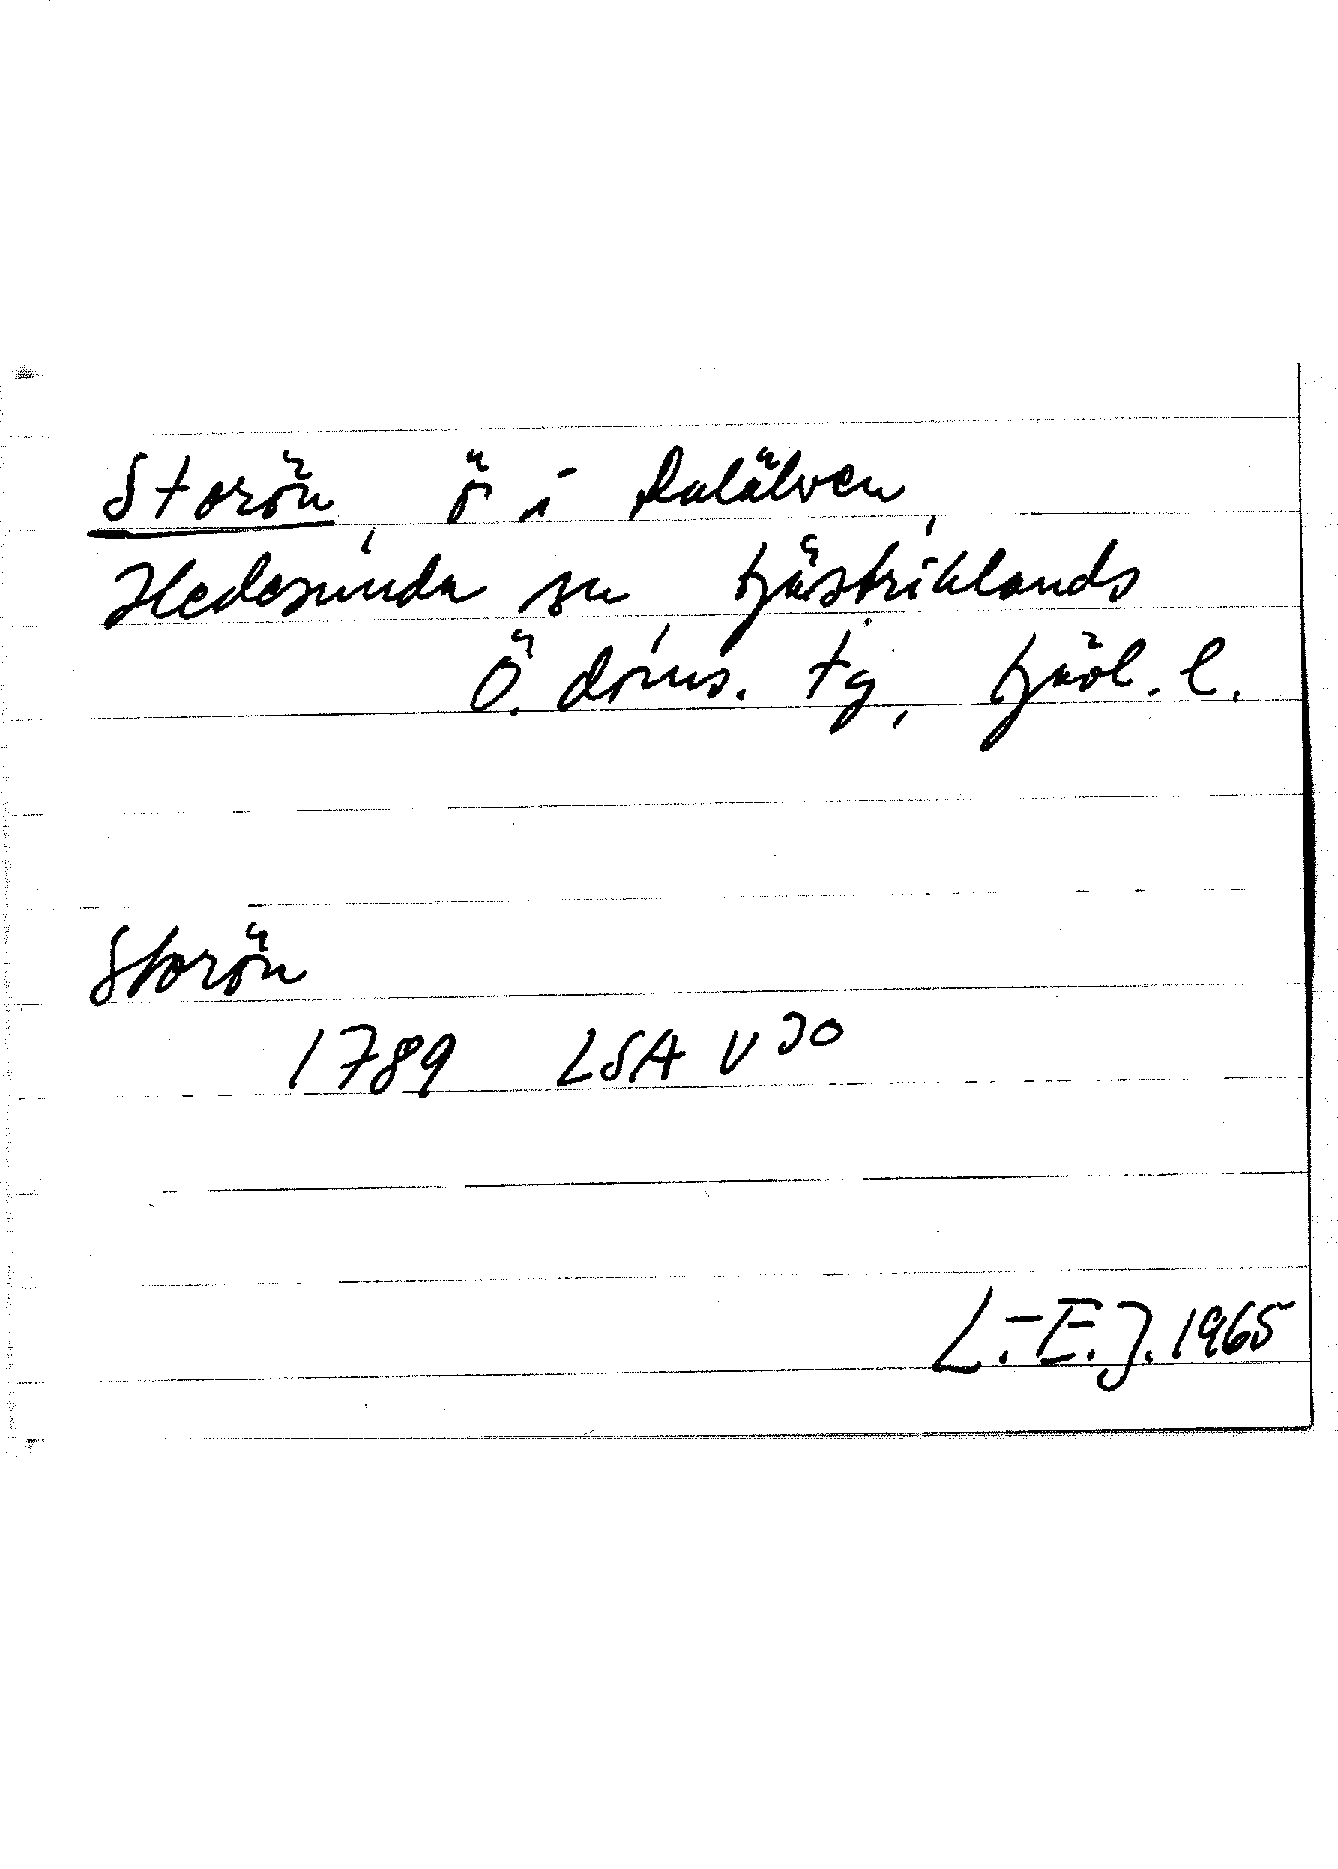 Storön, ö i Dalälven,
Hedesunda sn, Gästriklands
Ö. doms. tg, Gävl. l.
Storön
1789 LSA V 30
L.-E.J. 1965